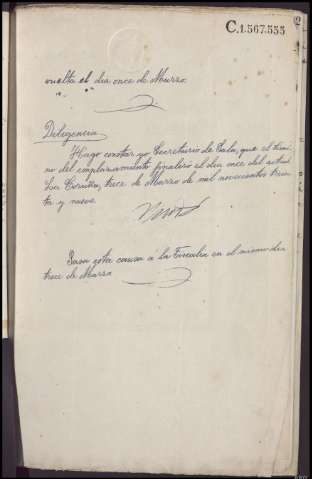 C.1.567.555
vuelta el dia once de Marzo.
Deligencia
Hago constar yo Secretario de Sala, que el termi-
no del emplazamiento finalizó el dia once del actual
La Coruña, trece de Marzo de mil novecientos trein-
ta y nueve.
Pasa esta causa a la Fiscalia en el mismo dia
trece de Marzo